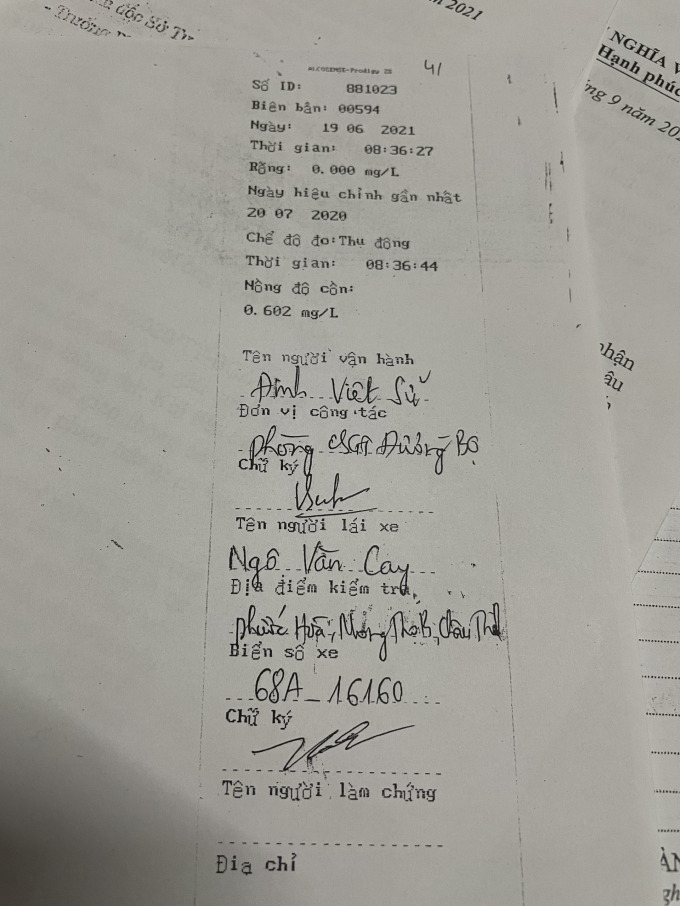 2021
NGHĨA V
Hạnh phúc
ng 9 năm 202
41
ALCOGENSE-Prodigy IS
Số ID: 881023
Biên bản: 00594
Ngày: 19 06 2021
Thời gian: 08:36:27
Rỗng: 0.000 mg/L
Ngày hiệu chỉnh gần nhất
20 07 2020
Chế độ đo:Thụ động
Thời gian: 08:36:44
Nồng độ cồn:
0.602 mg/L
Tên người vận hành
Đinh Viết Sử
Đơn vị công tác
phòng CSGT Đường Bộ
Chữ ký
Tên người lái xe
Ngô Văn Cay
Địa điểm kiểm tra
phước Hoà, Mong Thọ B, Châu Thành
Biển số xe
68A_16160
Chữ ký
Tên người làm chứng
Địa chỉ